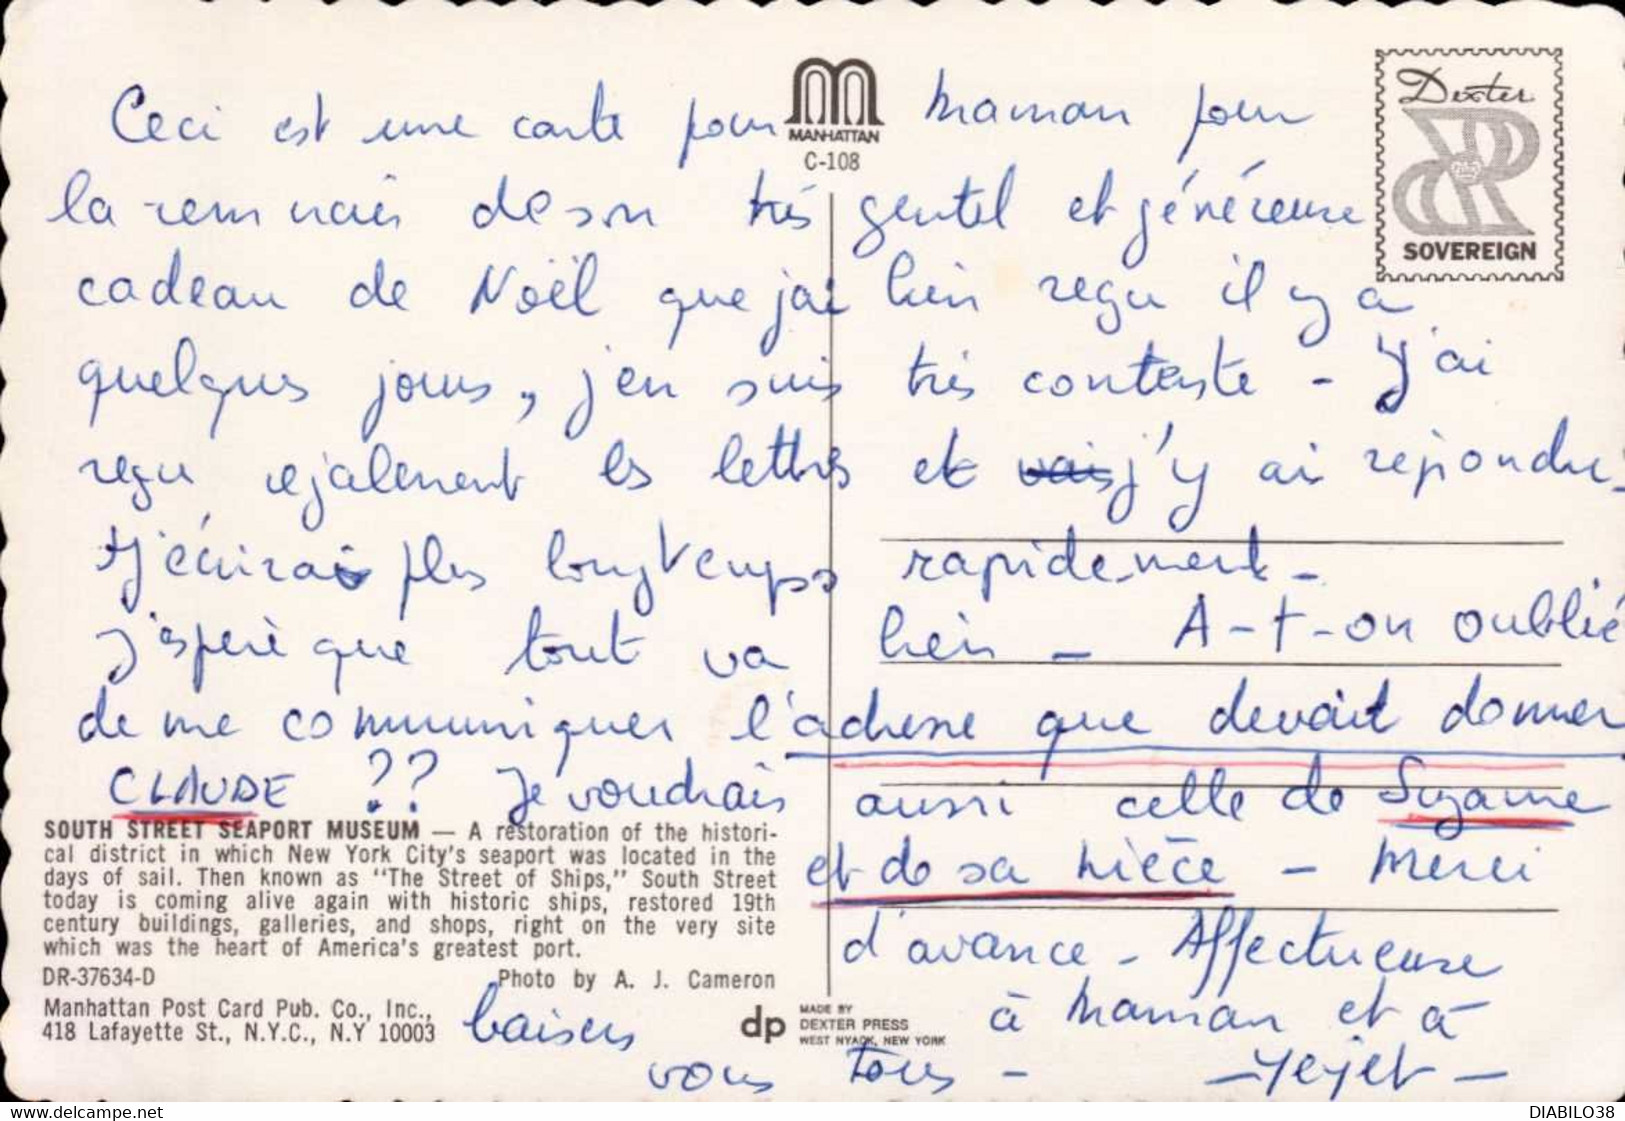 Dexter
SOVEREIGN
MANHATTAN
C-108
Ceci est une carte pour Maman pour
la remercier de son très gentil et généreuse
cadeau de Noël que j'ai bien reçu il y a
quelques jours, j'en suis très contente - J'ai
reçu également les lettres et vais j'y ai répondu -
J'écirai plus longtemps rapidement -
J'espère que tout va bien - A-t-on oublié
de me communiquer l'adresse que devait donner
CLAUDE ?? Je voudrais aussi celle de Suzanne
et de sa nièce - Merci
d'avance - Affectueuse
baisers à Maman et à
vous tous -
SOUTH STREET SEAPORT MUSEUM — A restoration of the histori-
cal district in which New York City's seaport was located in the
days of sail. Then known as "The Street of Ships," South Street
today is coming alive again with historic ships, restored 19th
century buildings, galleries, and shops, right on the very site
which was the heart of America's greatest port.
DR-37634-D Photo by A. J. Cameron
Manhattan Post Card Pub. Co., Inc.,
418 Lafayette St., N.Y.C., N.Y 10003
dp MADE BY
DEXTER PRESS
WEST NYACK, NEW YORK
DIABILO38